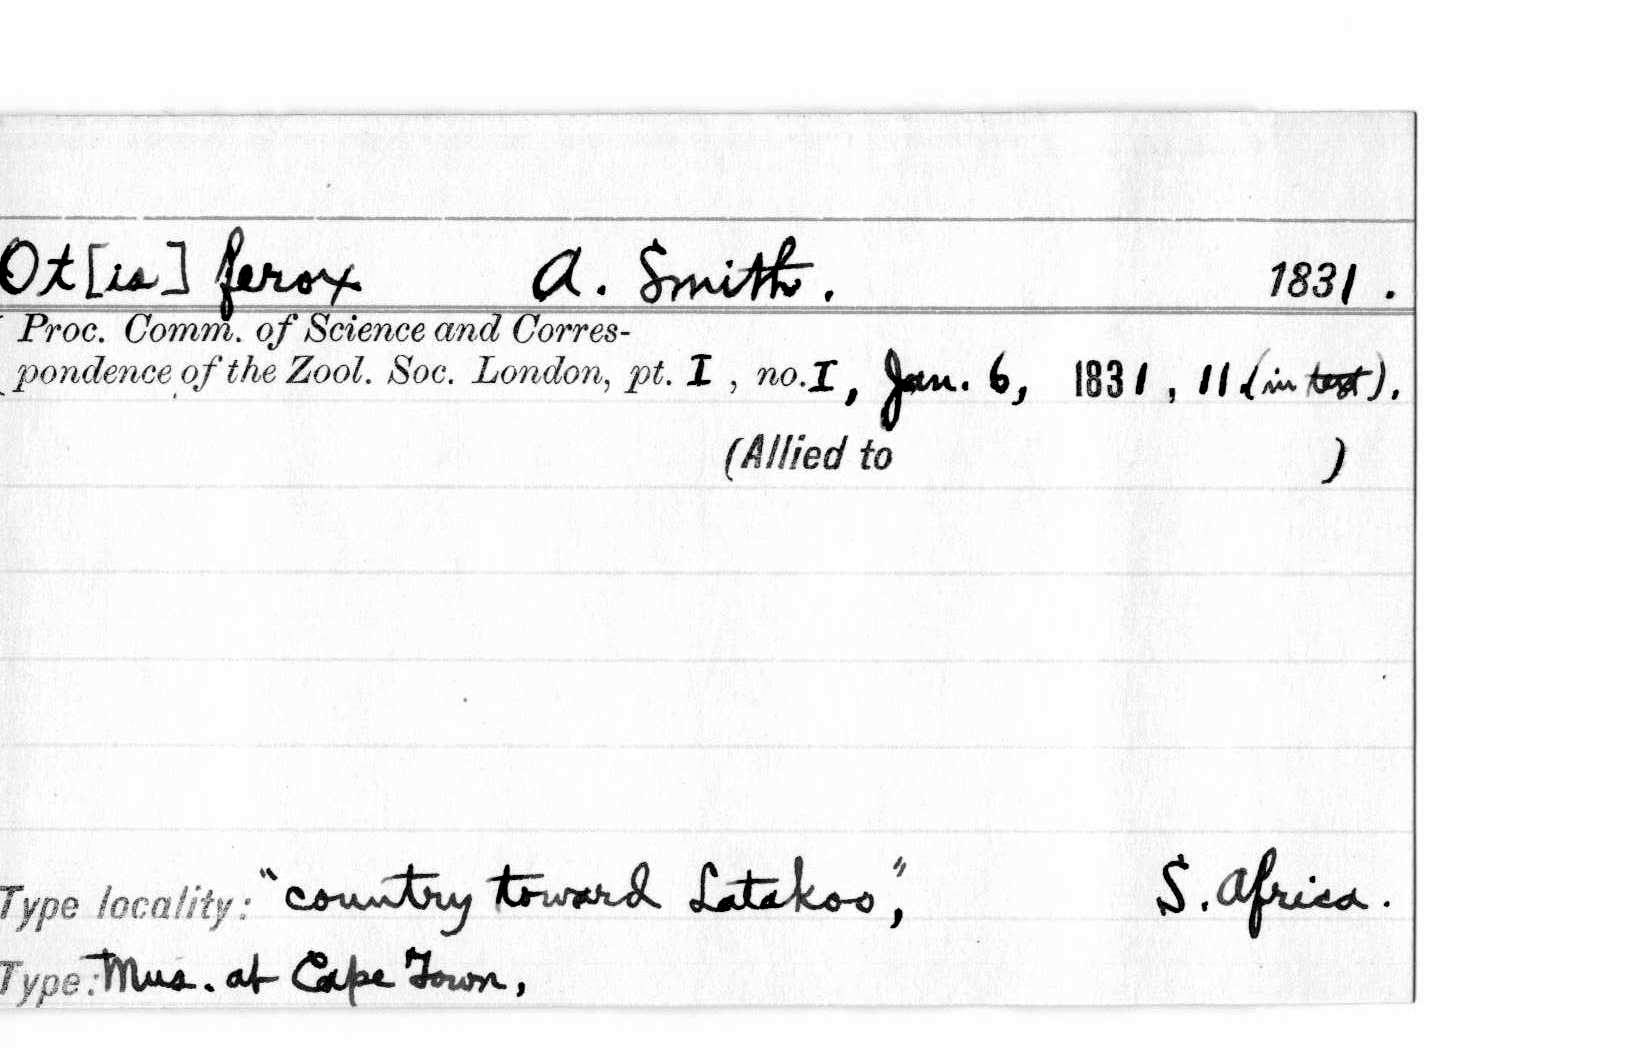 Ot[is] ferox A. Smith. 1831.
Proc. Comm. of Science and Corres-
pondence of the Zool. Soc. London, pt. I, no. I, Jan. 6, 1831, 11 (in text).
(Allied to )
Type locality: "country toward Latakoo", S. Africa.
Type: Mus. at Cape Town,